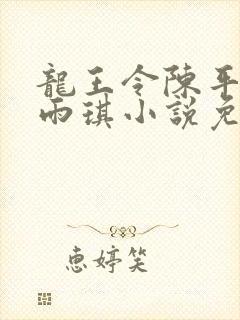 龍王令陳平
雨琪小說免
惠婷笑